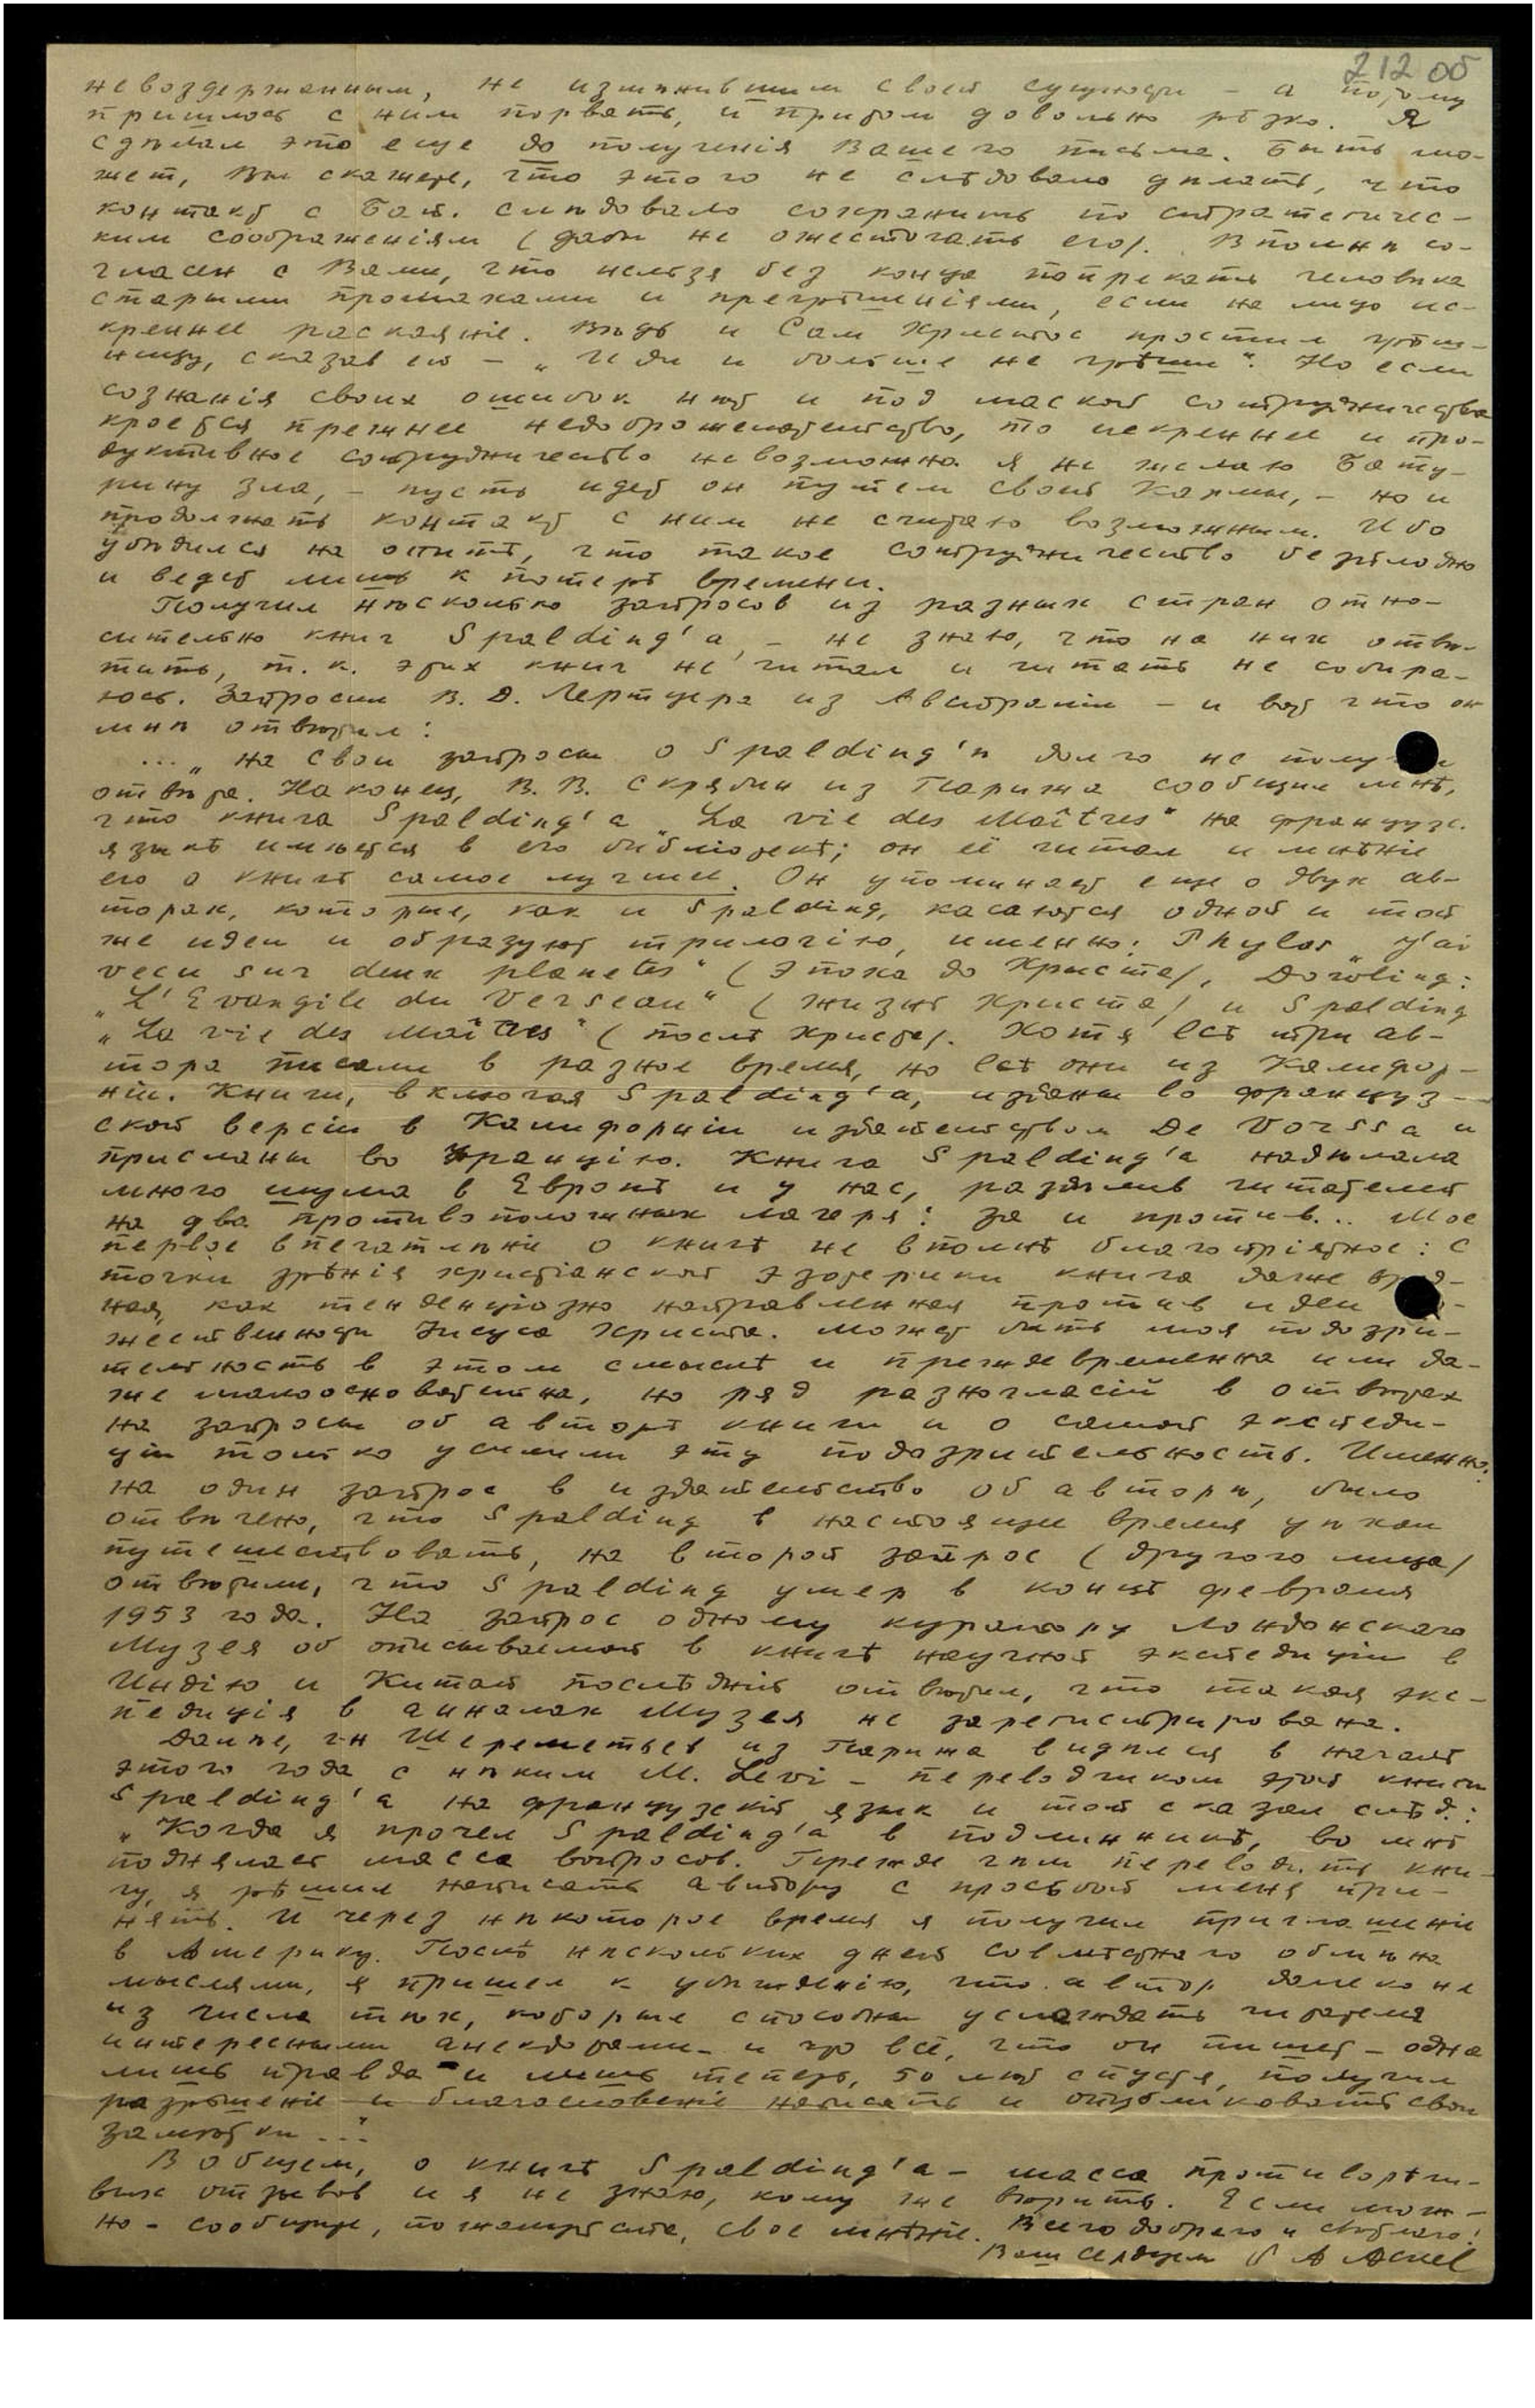 212 об
невоздержанным, не изменившим своей сущности – а потому
пришлось с ним порвать, и притом довольно рѣзко. Я
сдѣлал это еще до полученія Вашего письма. Быть мо-
жет, Вы скажете, что этого не слѣдовало дѣлать, что
контакт с Бат. слѣдовало сохранить по стратегичес-
ким соображеніям (дабы не ожесточать его). Вполнѣ со-
гласен с Вами, что нельзя без конца попрекать человѣка
старыми промахами и прегрѣшеніями, если на лицо ис-
креннее раскаяніе. Вѣдь и Сам Христос простил грѣш-
ницу, сказав ей – „Иди и больше не грѣши“. Но если
сознанія своих ошибок нѣт и под маской сотрудничества
кроется прежнее недоброжелательство, то искреннее и про-
дуктивное сотрудничество невозможно. Я не желаю Бату-
рину зла, – пусть идет он путем своей Кармы, – но и
продолжать контакт с ним не считаю возможным. Ибо
убѣдился на опытѣ, что такое сотрудничество безплодно
и ведет лишь к потерѣ времени.
Получил нѣсколько запросов из разных стран отно-
сительно книг Spalding'a, – не знаю, что на них отвѣ-
тить, т. к. этих книг не читал и читать не собира-
юсь. Запросил В. Д. Лертцера из Австраліи – и вот что он
мнѣ отвѣтил:
... „на свои запросы о Spalding'ѣ долго не получал
отвѣта. Наконец, В. В. Скрябин из Парижа сообщил мнѣ,
что книга Spalding'a „La vie des Maîtres“ на француз.
языкѣ имѣется в его библіотекѣ; он её читал и мнѣніе
его о книгѣ самое лучшее. Он упоминает еще о двух ав-
торах, которые, как и Spalding, касаются одной и той
же идеи и образуют трилогію, именно: Phylos „j'ai
vecu sur deux planetes“ (эпоха до Христа), Dowling:
„L'Evangile du Verseau“ (жизнь Христа) и Spalding
„La vie des Maîtres“ (послѣ Христа). Хотя всѣ три ав-
тора писали в разное время, но всѣ они из Калифор-
ніи. Книги, включая Spalding'a, изданы во француз-
ской версіи в Калифорніи издательством De Vorss'a и
присланы во Францію. Книга Spalding'a надѣлала
много шума в Европѣ и у нас, раздѣлив читателей
на два противоположных лагеря: за и против... Мое
первое впечатлѣніе о книгѣ не вполнѣ благопріятное: с
точки зрѣнія христіанской эзотерики книга даже вред-
ная, как тенденціозно направленная против идеи Бо-
жественности Іисуса Христа. Может быть моя подозри-
тельность в этом смыслѣ и преждевременна или да-
же малоосновательна, но ряд разногласій в отвѣтах
на запросы об авторѣ книги и о самой экспеди-
ціи только усилили эту подозрительность. Именно:
на один запрос в издательство об авторѣ, было
отвѣчено, что Spalding в настоящее время уѣхал
путешествовать, на второй запрос (другого лица)
отвѣтили, что Spalding умер в концѣ февраля
1953 года. На запрос одному куратору Лондонского
Музея об описываемой в книгѣ научной экспедиціи в
Индію и Китай послѣдній отвѣтил, что такая экс-
педиція в анналах Музея не зарегистрирована.
Далѣе, г-н Шереметьев из Парижа видѣлся в началѣ
этого года с нѣким M. Levi – переводчиком этой книги
Spalding'a на французскій язык и той сказал слѣд.:
„Когда я прочел Spalding'a в подлинникѣ, во мнѣ
поднялась масса вопросов. Прежде чѣм переводить кни-
гу, я рѣшил написать автору с просьбой меня при-
нять. И через нѣкоторое время я получил приглашеніе
в Америку. Послѣ нѣскольких дней совмѣстного обмѣна
мыслями, я пришел к убѣжденію, что автор далеко не
из числа тѣх, которые способны услаждать читателя
интересными анекдотами – и что всё, что он пишет – одна
лишь правда и лишь теперь, 50 лѣт спустя, получил
разрѣшеніе и благословеніе написать и опубликовать свои
замѣтки ...“
В общем, о книгѣ Spalding'a – масса противорѣчи-
вых отзывов и я не знаю, кому же вѣрить. Если мож-
но – сообщите, пожалуйста, свое мнѣніе. Всего добраго и свѣтлаго!
Ваш сердцем